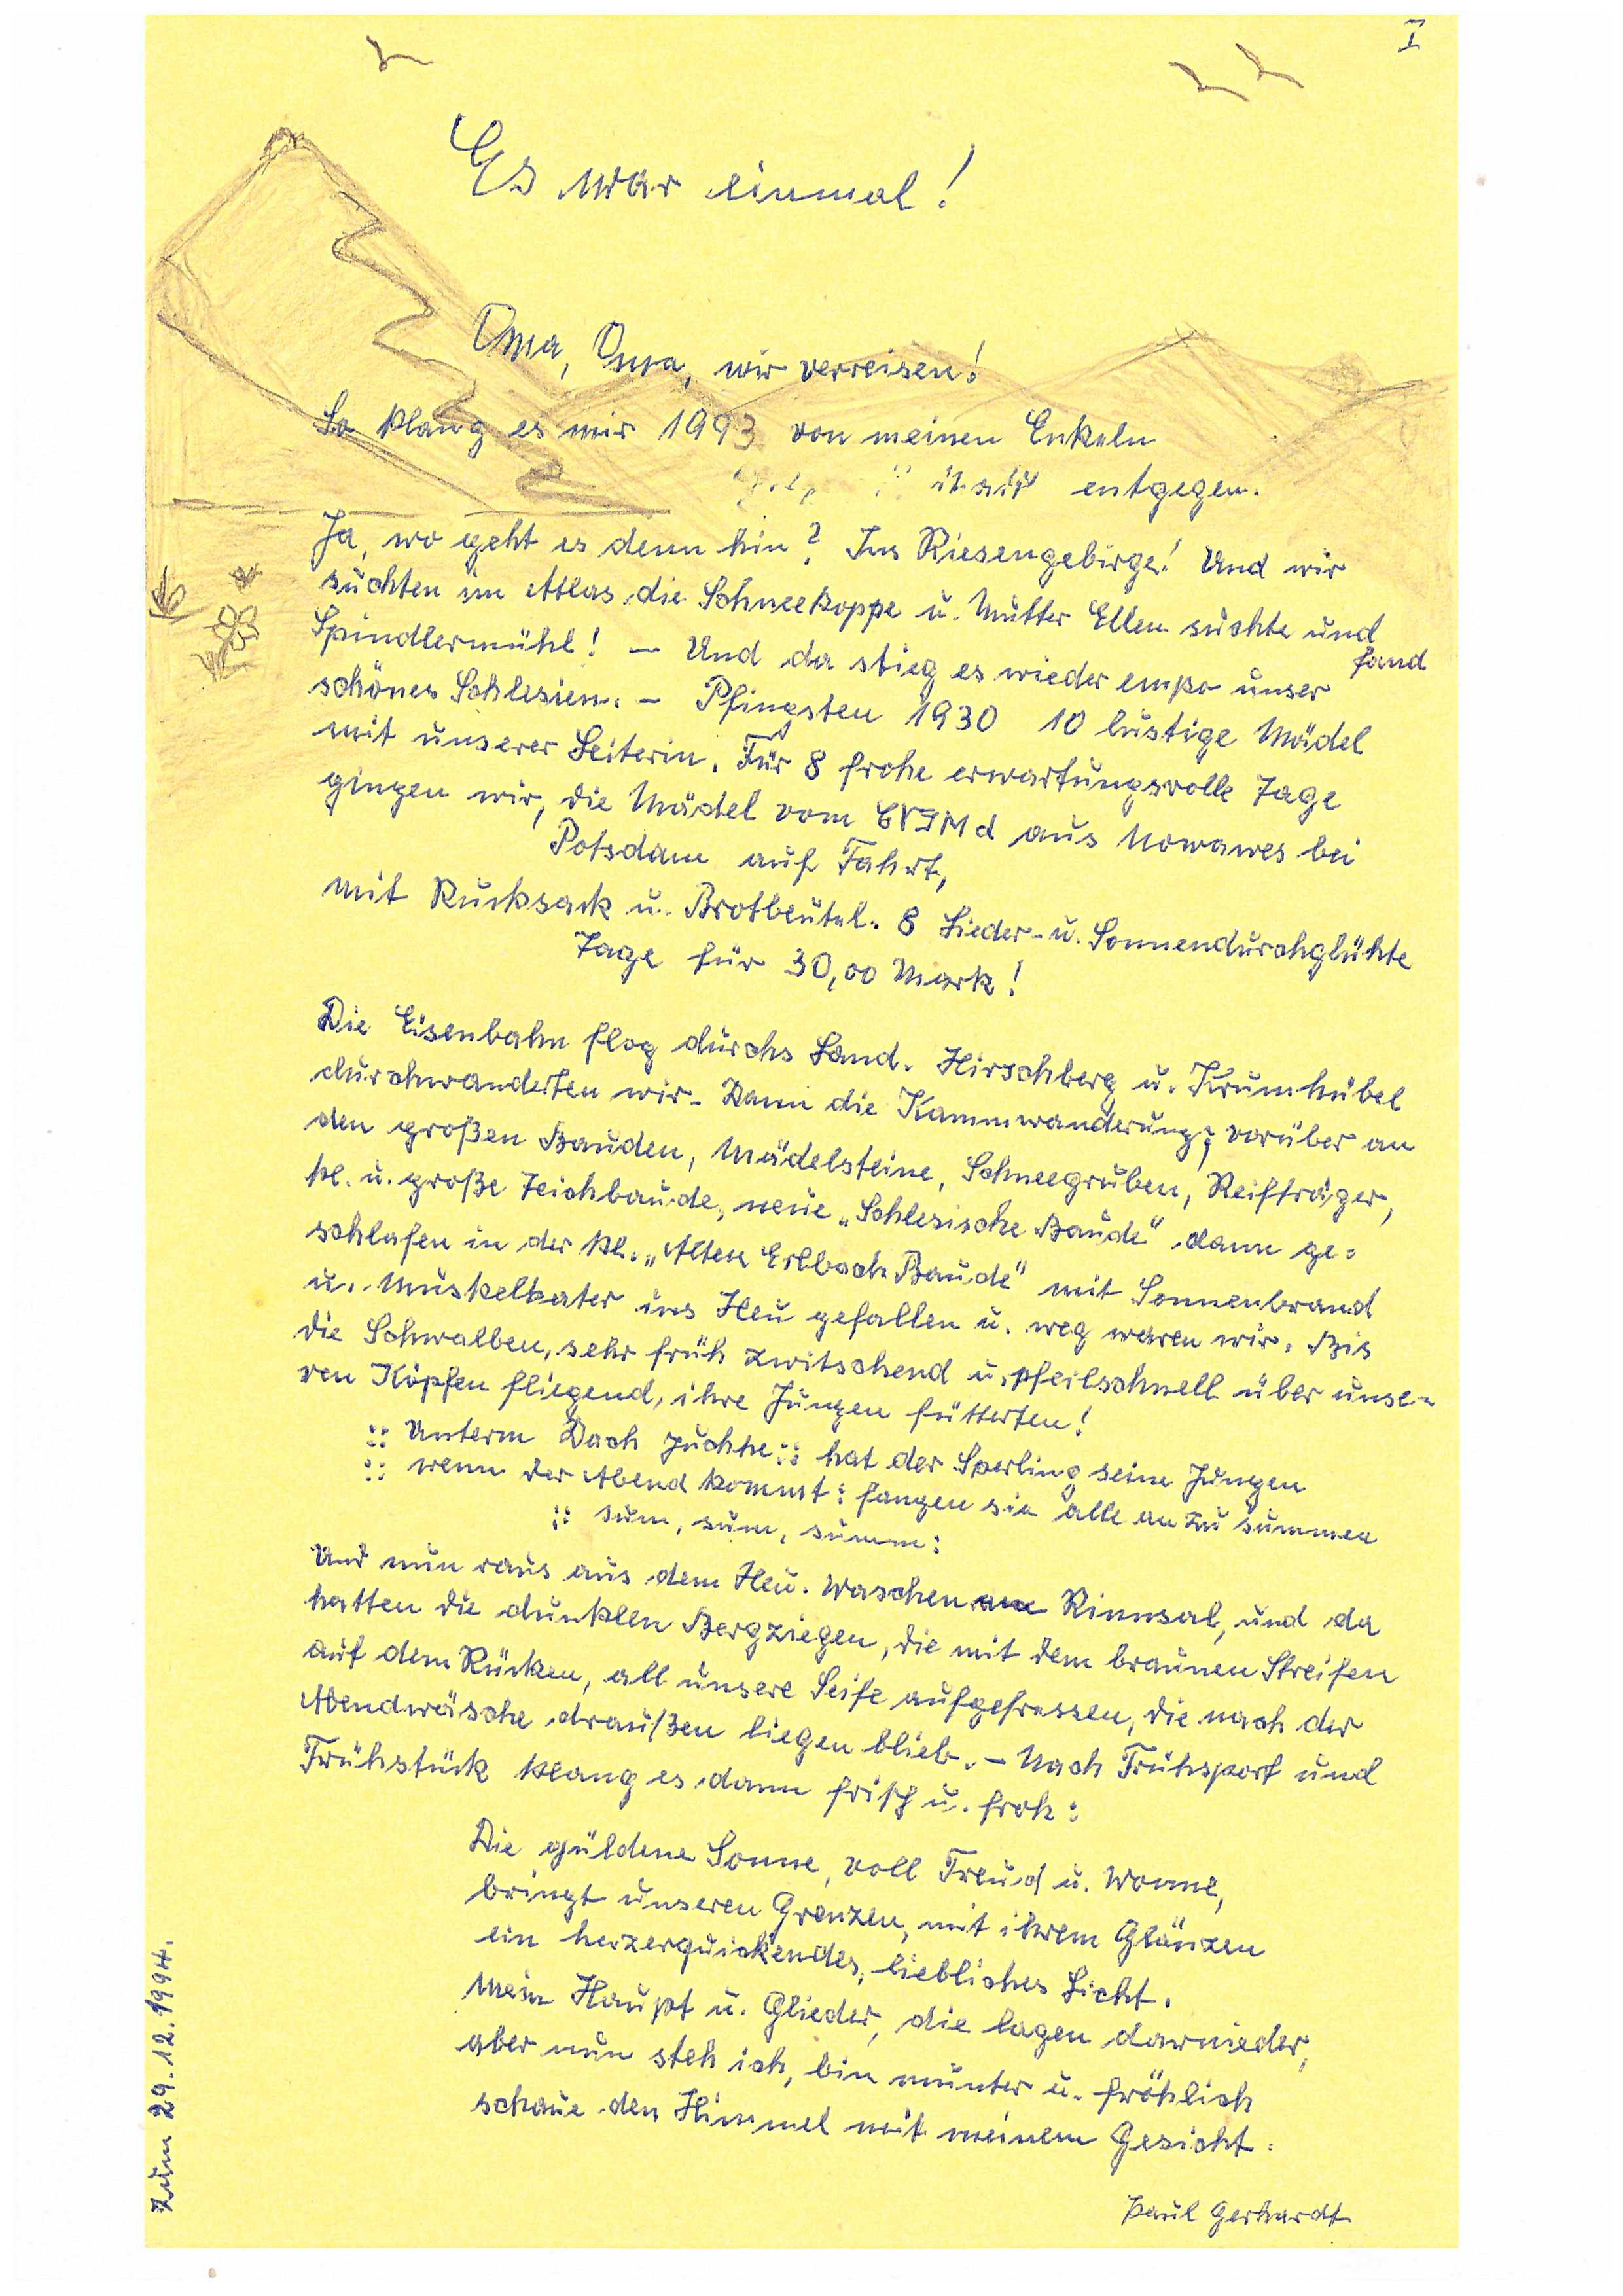 I
Es war einmal!
Oma, Oma, wir verreisen!
So klang es mir 1993 von meinen Enkeln
entgegen.
Ja, wo geht es denn hin? Ins Riesengebirge! Und wir
suchten im Atlas die Schneekoppe u. Mutter Ellen suchte und
fand
Spindlermühl! – Und da stieg es wieder empor unser
schönes Schlesien. – Pfingsten 1930 10 lustige Mädel
mit unserer Leiterin. Für 8 frohe erwartungsvolle Tage
gingen wir, die Mädel vom CVJMd aus Nowawes bei
Potsdam auf Fahrt,
mit Rucksack u. Brotbeutel. 8 Lieder- u. Sonnendurchglühte
Tage für 30,00 Mark!
Die Eisenbahn flog durchs Land. Hirschberg u. Krumhübel
durchwanderten wir. Dann die Kammwanderung; vorüber an
den großen Bauden, Mädelsteine, Schneegruben, Reifträger,
kl. u. große Teichbaude, neue „Schlesische Baude" dann ge-
schlafen in der kl. „Alten Erlbach Baude" mit Sonnenbrand
u. Muskelkater ins Heu gefallen u. weg waren wir. Bis
die Schwalben, sehr früh zwitschend u. pfeilschnell über unse-
ren Köpfen fliegend, ihre Jungen fütterten!
:: Unterm Dach juchhe :: hat der Sperling seine Jungen
:: wenn der Abend kommt : fangen sie alle an zu summen
:: sum, sum, summ :
Und nun raus aus dem Heu. Waschen am Rinnsal, und da
hatten die dunklen Bergziegen, die mit dem braunen Streifen
auf dem Rücken, all unsere Seife aufgefressen, die nach der
Abendwäsche draußen liegen blieb. – Nach Frühsport und
Frühstück klang es dann frisch u. froh :
Die güldene Sonne, voll Freud u. Wonne,
bringt unseren Grenzen, mit ihrem Glänzen
ein herzerquickendes, liebliches Licht.
Mein Haupt u. Glieder, die lagen darnieder,
aber nun steh ich, bin munter u. fröhlich
schaue den Himmel mit meinem Gesicht.
Paul Gerhardt
zum 29.12.1994.